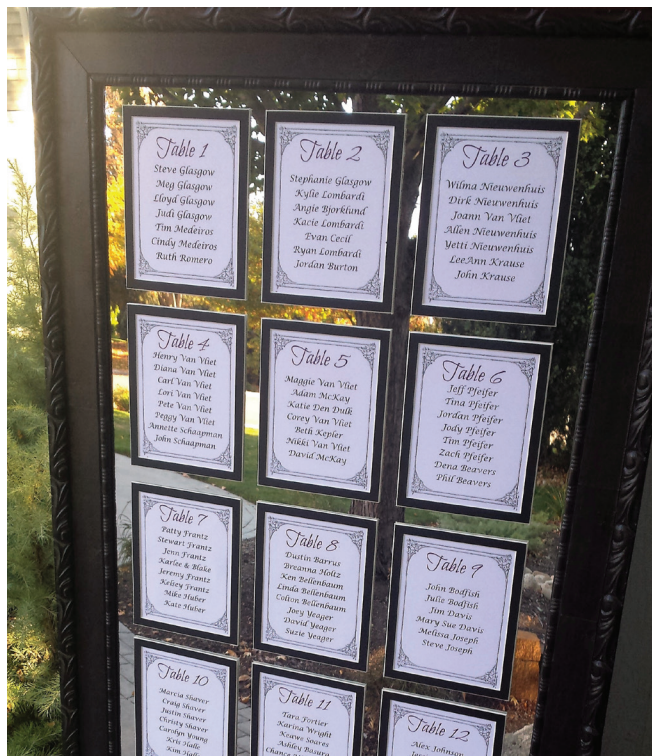 Table 1
Steve Glasgow
Meg Glasgow
Lloyd Glasgow
Judi Glasgow
Tim Medeiros
Cindy Medeiros
Ruth Romero
Table 2
Stephanie Glasgow
Kylie Lombardi
Angie Bjorklund
Kacie Lombardi
Evan Cecil
Ryan Lombardi
Jordan Burton
Table 3
Wilma Nieuwenhuis
Dirk Nieuwenhuis
Joann Van Vliet
Allen Nieuwenhuis
Yetti Nieuwenhuis
LeeAnn Krause
John Krause
Table 4
Henry Van Vliet
Diana Van Vliet
Carl Van Vliet
Lori Van Vliet
Pete Van Vliet
Peggy Van Vliet
Annette Schaapman
John Schaapman
Table 5
Maggie Van Vliet
Adam McKay
Katie Den Dulk
Corey Van Vliet
Beth Kepler
Nikki Van Vliet
David McKay
Table 6
Jeff Pfeifer
Tina Pfeifer
Jordan Pfeifer
Jody Pfeifer
Tim Pfeifer
Zach Pfeifer
Dena Beavers
Phil Beavers
Table 7
Patty Frantz
Stewart Frantz
Jenn Frantz
Karlee & Blake
Jeremy Frantz
Kelsey Frantz
Mike Huber
Kate Huber
Table 8
Dustin Barrus
Breanna Holtz
Ken Bellenbaum
Linda Bellenbaum
Colton Bellenbaum
Joey Yeager
David Yeager
Suzie Yeager
Table 9
John Bodfish
Julie Bodfish
Jim Davis
Mary Sue Davis
Melissa Joseph
Steve Joseph
Table 10
Marcia Shaver
Craig Shaver
Justin Shaver
Christy Shaver
Carolyn Young
Kris Halle
Kim
Table 11
Tara Fortier
Karina Wright
Keawe Soares
Ashley
Table 12
Alex Johnson